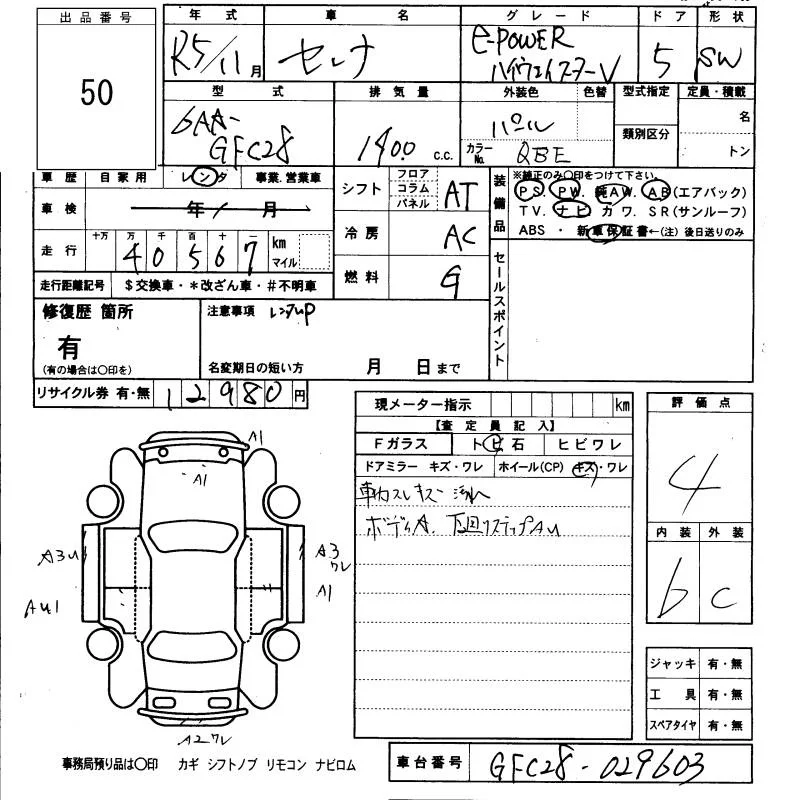 出品番号
50
年式
R5/11月
車名
セレナ
グレード
e-POWER
ハイウェイスターV
ドア
5
形状
SW
型式
6AA-
GFC28
排気量
1400 c.c.
外装色
色替
パール
カラーNo.
QBE
型式指定
類別区分
定員・積載
名
トン
車歴 自家用 レンタ 事業.営業車
車検 年 月
走行 十万 万 千 百 十 一
4 0 5 6 7 km マイル
走行距離記号 $交換車・*改ざん車・#不明車
シフト フロア コラム パネル AT
冷房 AC
燃料 G
装備品
※純正のみ○印をつけて下さい。
PS. PW. 純AW. AB(エアバック)
TV. ナビ カワ. SR(サンルーフ)
ABS ・ 新車保証書←(注) 後日送りのみ
セールスポイント
修復歴 箇所
有
(有の場合は○印を)
注意事項 レンタUP
名変期日の短い方 月 日まで
リサイクル券 有・無 12980円
現メーター指示 km
【査定員記入】
Fガラス トビ石 ヒビワレ
ドアミラー キズ・ワレ ホイール(CP) キズ・ワレ
車内スレキズ 汚れ
ボディA. 下回りステップAU
評価点
4
内装 外装
b C
ジャッキ 有・無
工具 有・無
スペアタイヤ 有・無
A1
A1
A3U
A3
ワレ
AU1
A1
A2ワレ
事務局預り品は○印 カギ シフトノブ リモコン ナビロム
車台番号 GFC28-029603